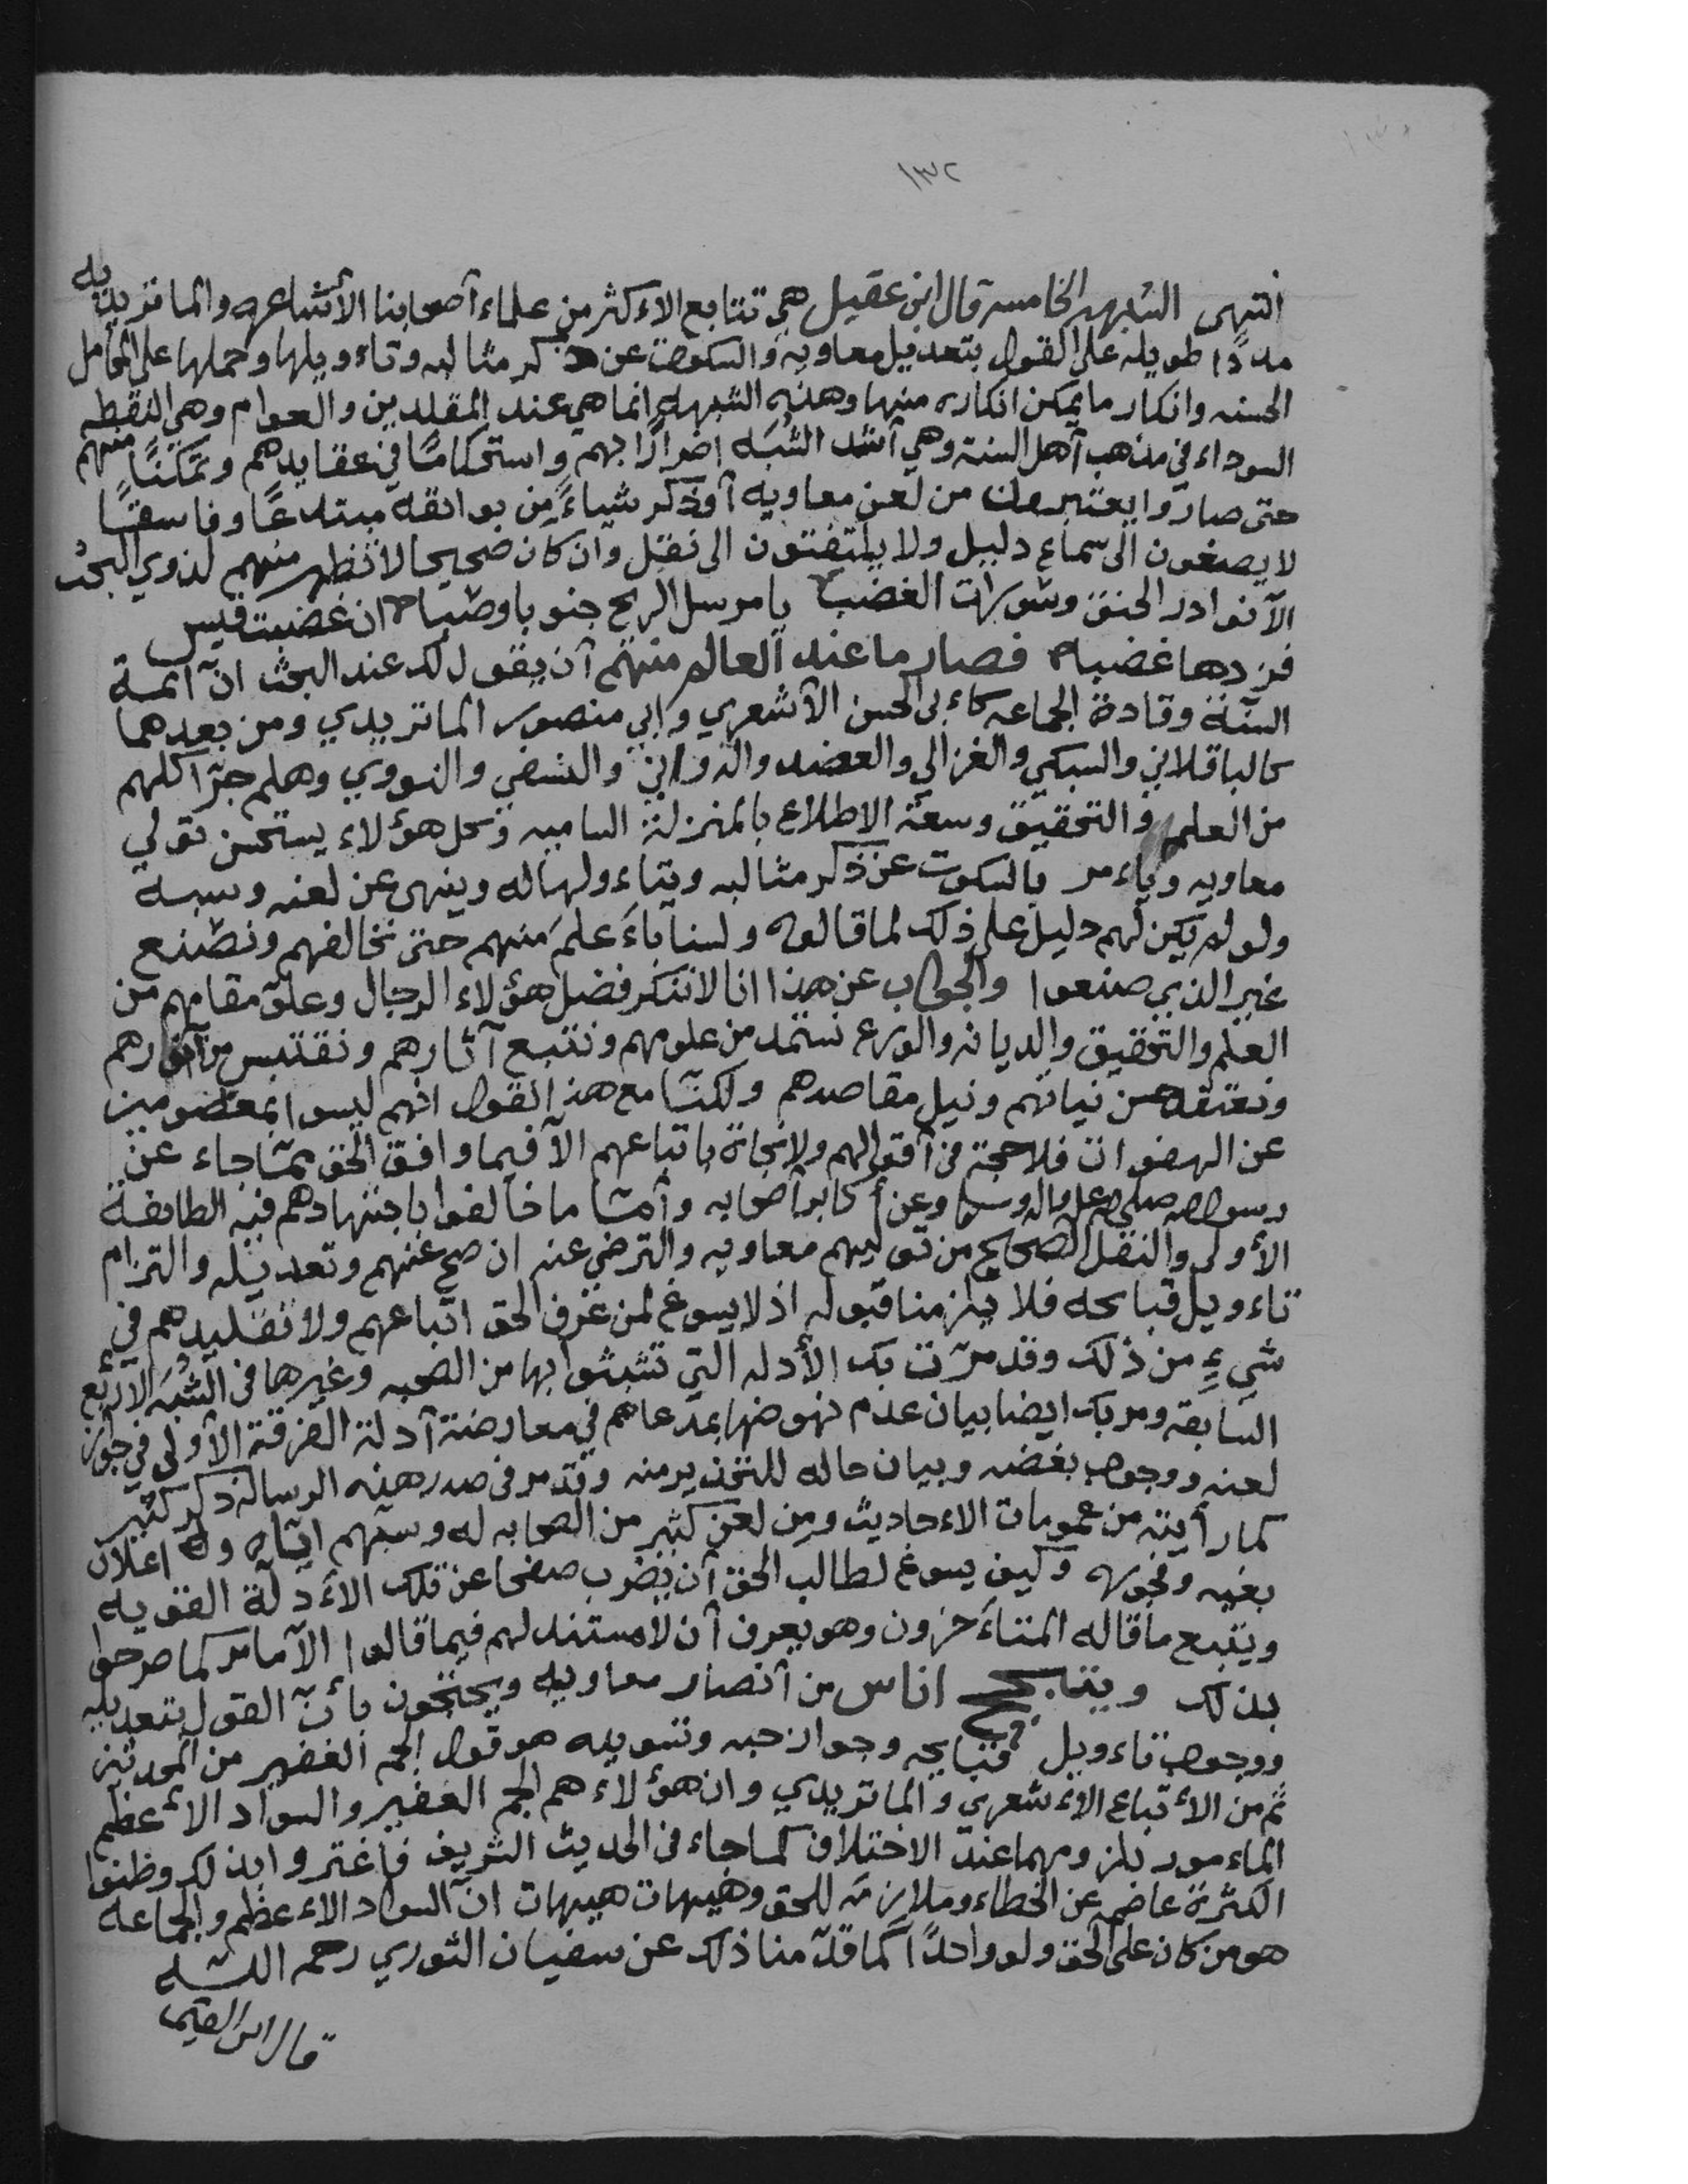 ١٣٢
انتهى الشبهه الخامسه قال ابن عقيل هي تتابع الاءكثر من علماء أصحابنا الأشاعره والماتريديه
مددًا طويله على القول بتعديل معاويه والسكوت عن ذكر مثالبه وتاءويلها وحملها على المحامل
الحسنه وانكار ما يمكن انكاره منها وهذه الشبهه انما هي عند المقلدين والعوام وهي النقطه
السوداء في مذهب أهل السنة وهي أشد الشُبَه اضرارًا بهم واستحكامًا في عقايدهم وتمكنًا منهم
حتى صاروا يعتبرون من لعن معاويه أوذكر شياءً من بوائقه مبتدعًا وفاسقًا
لا يصغون الى سماع دليل ولا يلتفتون الى نقل وان كان صحيحا لا تظهر منهم لذوي البحث
الآ نوادر الحنق وسَورات الغضب يا مرسل الريح جنوبا وصبا ان غضبت قيس
فزدها غضبا فصار ما عند العالم منهم أن يقول لك عند البحث انّ آئمة
السنّة وقادة الجماعه كاءبى الحسن الأشعري وابي منصور الماتريدي ومن بعدهما
كالباقلاني والسبكي والغزالي والعضد والدواني والنسفي والنووي وهلم جرّا كلهم
من العلم والتحقيق وسعة الاطلاع بالمنزلة الساميه وكل هؤلاء يستحسن تولي
معاويه وياءمر بالسكوت عن ذكر مثالبه ويتاءولها له وينهى عن لعنه وسبه
ولو لم يكن لهم دليل على ذلك لما قالوه ولسنا باءعلم منهم حتى نخالفهم ونصنع
غير الذي صنعوا والجواب عن هذا انا لا ننكر فضل هؤلاء الرجال وعلوّ مقامهم من
العلم والتحقيق والديانه والورع نستمد من علومهم ونتبع آثارهم ونقتبس من أنوارهم
ونعتقد حسن نياتهم ونيل مقاصدهم ولكنّا مع هذ القول انهم ليسوا بمعصومين
عن الهفوات فلا حجة في أقوالهم ولا نجاة باتباعهم الآ فيما وافق الحق ممّا جاء عن
رسول الله صلى الله عليه واله وسلم وعن أكابر أصحابه وأمّا ما خالفوا باجتهادهم فيه الطائفة
الأولى والنقل الصحيح من توليهم معاويه والترضي عنه ان صح عنهم وتعديله والتزام
تاءويل قبائحه فلا يلزمنا قبوله اذ لا يسوغ لمن عرف الحق اتباعهم ولا تقليدهم في
شيءٍ من ذلك وقد مرّت بك الأدله التي تشبثوا بها من الصحبه وغيرها في الشُبَه الآربع
السابقة ومر بك ايضا بيان عدم نهوضها بمدعاهم في معارضة آدلة الفرقة الآولى في جواز
لعنه ووجوب بغضه وبيان حاله للتحذير منه وقد مر في صدر هذه الرسالة ذكر كثير
كما رأيته من عمومات الاءحاديث ومن لعن كثير من الصحابه له وسبهم ايّاه و اعلان
بغيه وفجوره وكيف يسوغ لطالب الحق أن يضرب صفحا عن تلك الاءدلّة القويه
ويتبع ما قاله المتاءخرون وهو يعرف آن لا مستند لهم فيما قالوا الآ مامر كما صرحوا
بذلك ويتبجح اناس من آنصار معاويه ويحتجون بأنّ القول بتعديله
ووجوب تاءويل قبايحه وجواز حبه وتسويده هو قول الجم الغفير من المحدثين
ثم من الأتباع الاءشعري والماتريدي وان هؤلاء هم الجم الغفير والسواد الاءعظم
الماءمور بلزومهما عند الاختلاف كما جاء في الحديث الشريف فاغتروا بذلك وظنوا
الكثرة عاصمه عن الخطاء وملازمَه للحق وهيهات هيهات انّ السواد الاءعظم والجماعه
هو من كان على الحق ولو واحدًا كما قدّمنا ذلك عن سفيان الثوري رحمه اللـه
قال ابن القيم